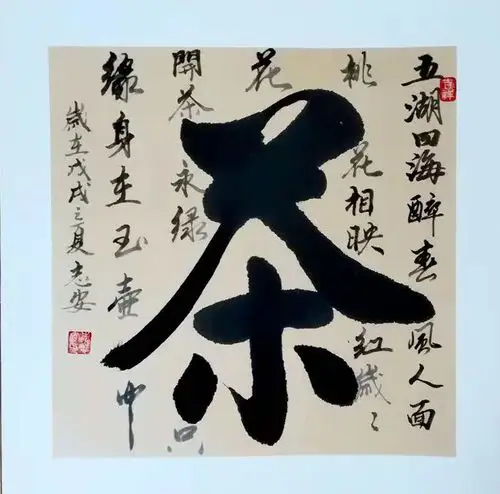 茶
五湖四海醉春風人面
桃花相映红歲々
花
開茶永绿只
緣身在玉壺中
歲在戊戌之夏志安
吉祥